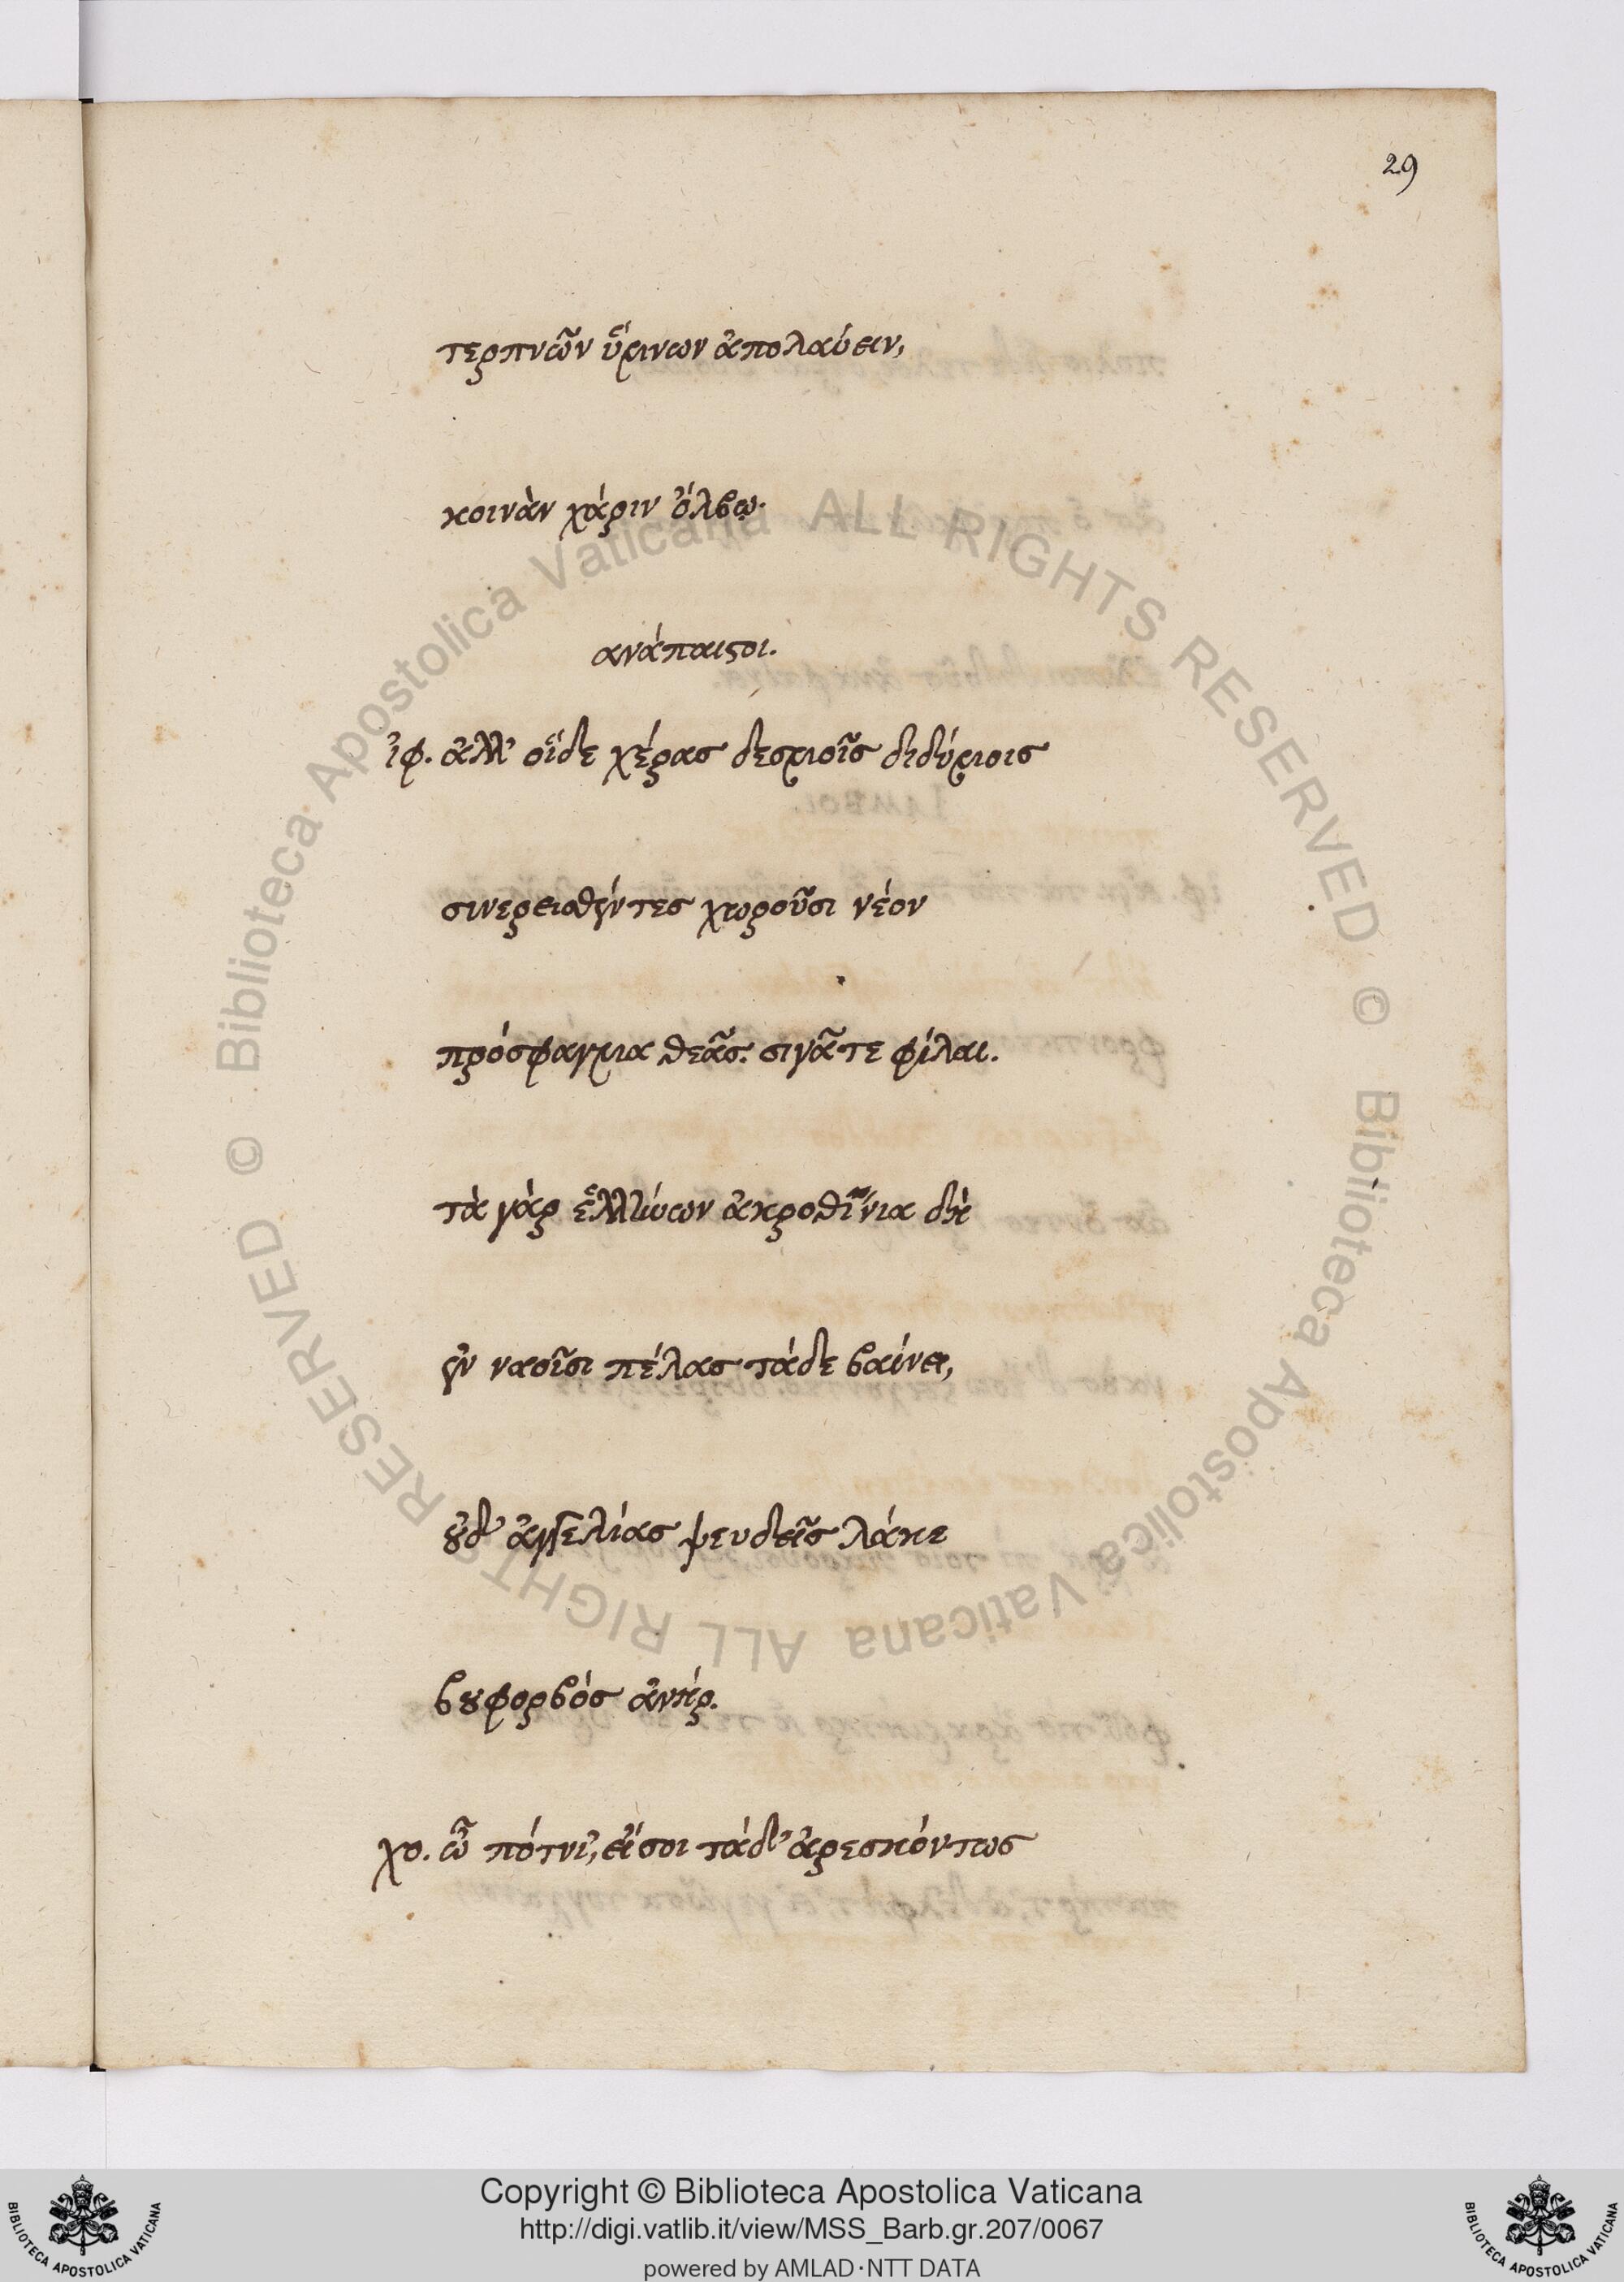 29
τερπνῶν ὕμνων ἀπολαύειν,
κοινὰν χάριν ὄλβῳ.
ανάπαιστοι.
ἰφ. ἀλλ' οἵδε χέρας δεσμοῖς διδύμοις
συνερεισθέντες χωροῦσι νέον
πρόσφαγμα θεᾶς. σιγᾶτε φίλαι.
τὰ γὰρ ἑλλήνων ἀκροθίνια δὴ
ἐν ναοῖσι πέλας τάδε βαίνει,
οὐδ' ἀγγελίας ψευδεῖς λάκε
βουφορβός ἀνήρ.
χο. ὦ πότνι', εἴ σοι τάδ' ἀρεσκόντως
© Biblioteca Apostolica Vaticana ALL RIGHTS RESERVED
© Biblioteca Apostolica Vaticana ALL RIGHTS RESERVED
BIBLIOTECA APOSTOLICA VATICANA
Copyright © Biblioteca Apostolica Vaticana
http://digi.vatlib.it/view/MSS_Barb.gr.207/0067
powered by AMLAD·NTT DATA
BIBLIOTECA APOSTOLICA VATICANA